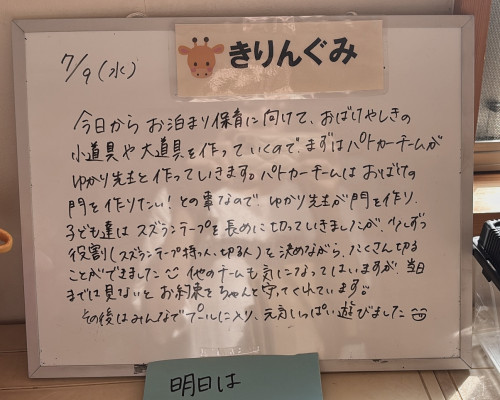 きりんぐみ
7/9(水)
今日から お泊まり保育に向けて、おばけやしきの
小道具や大道具を作っていくので、まずはパトカーチームが
ゆかり先生と作っていきます。パトカーチームは おばけの
門を作りたい!との事なので、ゆかり先生が門を作り、
子ども達は スズランテープを長めに切っていきましたが、少しずつ
役割(スズランテープ持つ人、切る人)を決めながら、たくさん切る
ことができました 他のチームも気になってはいますが、当日
までは見ないと お約束をちゃんと守ってくれています。
その後はみんなでプールに入り、元気いっぱい遊びました
明日は